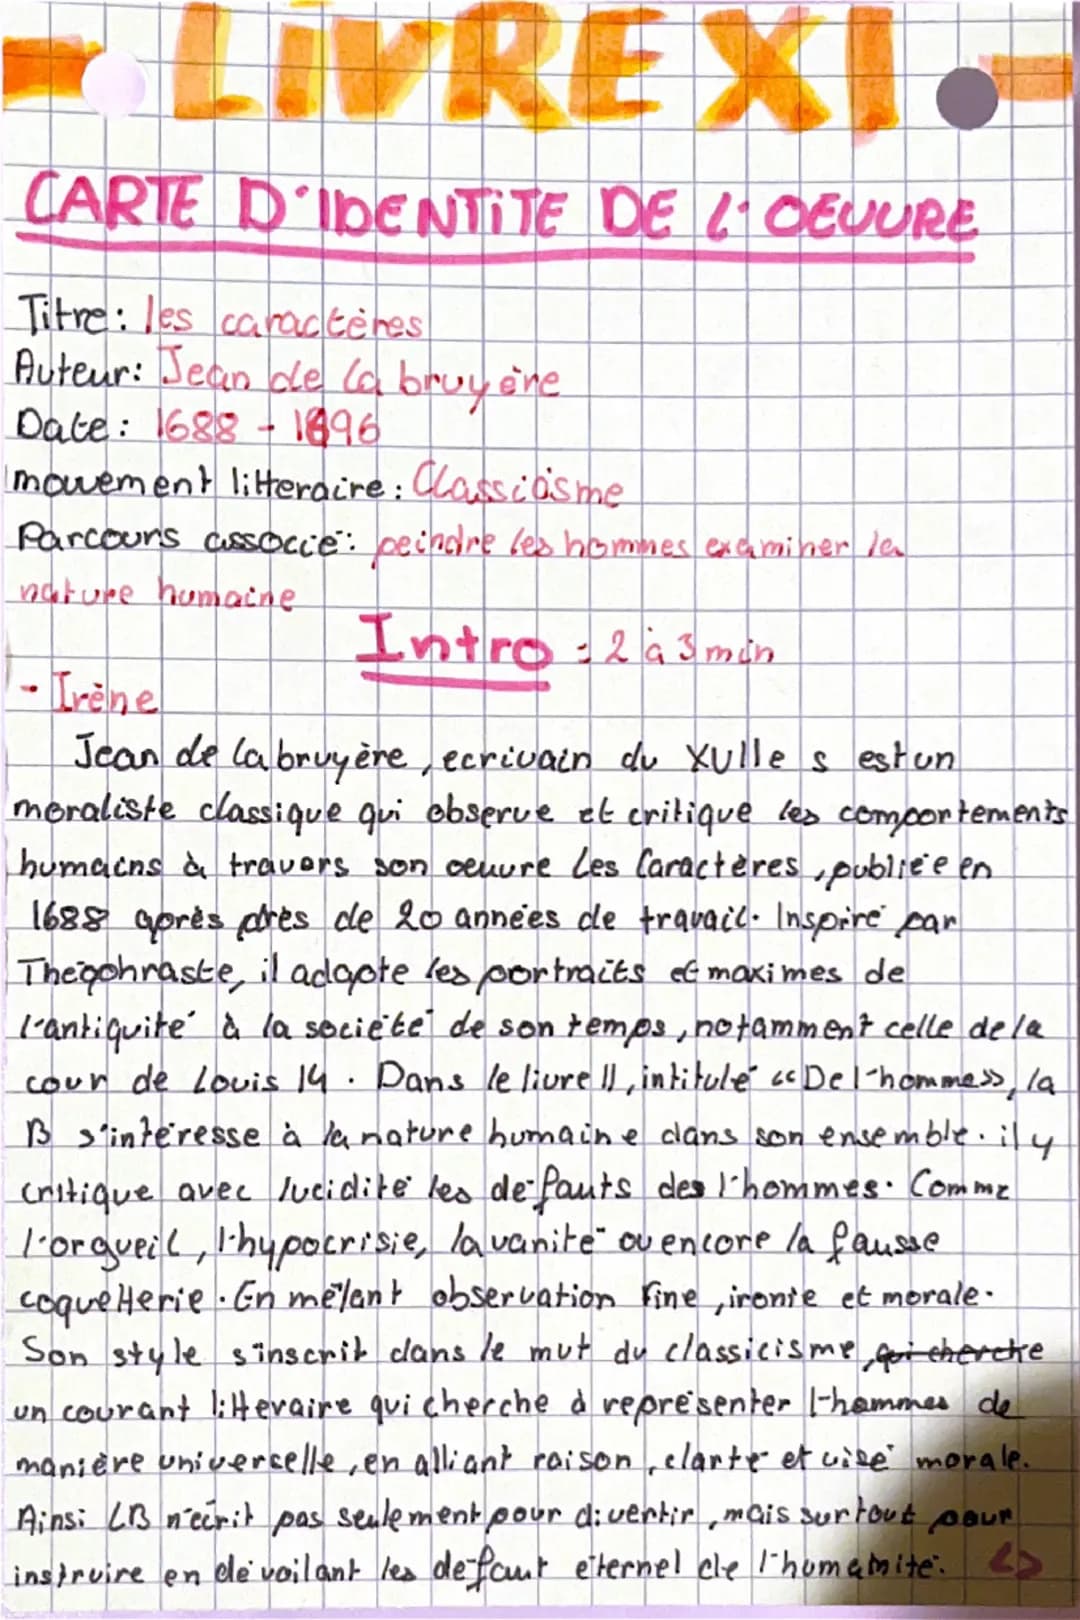 - LIVRE XI -
CARTE D'IDENTITE DE L'OEUVRE
Titre: les caractères
Auteur: Jean de la bruyère
Date: 1688 - 1696
mouvement litteraire: Classicisme
Parcours associé: peindre les hommes examiner la
nature humaine
Intro = 2 à 3 min
- Irène
Jean de la bruyère, ecrivain du XVIIe s est un
moraliste classique qui observe et critique les comportements
humains à travers son oeuvre Les Caractères, publiée en
1688 après près de 20 années de travail. Inspiré par
Théophraste, il adapte les portraits et maximes de
l'antiquité à la société de son temps, notamment celle de la
cour de Louis 14. Dans le livre 11, intitulé «De l'homme», la
B s'intéresse à la nature humaine dans son ensemble. il y
critique avec lucidité les défauts des l'hommes. Comme
l'orgueil, l'hypocrisie, la vanité ou encore la fausse
coquetterie. En mêlant observation fine, ironie et morale.
Son style s'inscrit dans le mut du classicisme, qui cherche
un courant litteraire qui cherche à représenter l'hommes de
manière universelle, en alliant raison, clarté et visé morale.
Ainsi LB n'écrit pas seulement pour divertir, mais surtout pour
instruire en dévoilant les défaut éternel de l'humanité.